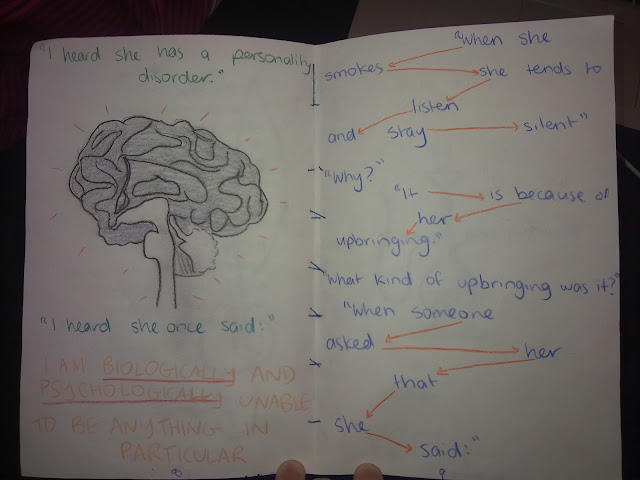 "I heard she has a personality
disorder."
"I heard she once said:"
I AM BIOLOGICALLY AND
PSYCHOLOGICALLY UNABLE
TO BE ANYTHING IN
PARTICULAR
8
"when she
smokes she tends to
listen
and stay silent"
"Why?"
"It is because of
her
upbringing."
"What kind of upbringing was it?"
"When someone
asked her
that
she
said:"
9